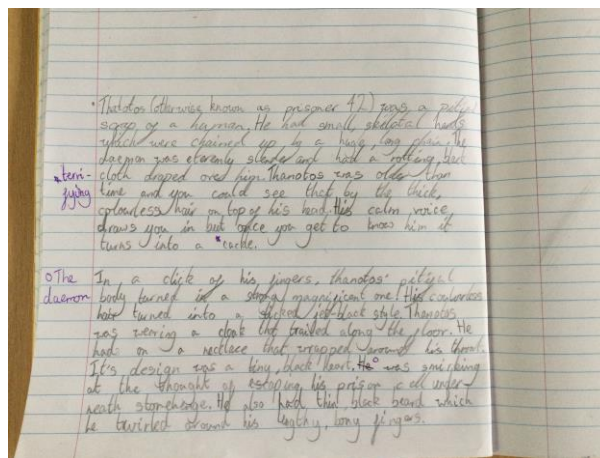 Thanotos (otherwise known as prisoner 42) was a pitiful
scrap of a human. He had small, skeletal hands
which were chained up by a huge, long chain. The
daemon was extremly slender and had a rotting, black
cloth draped over him. Thanotos was older than
*terri-
fying
time and you could see that by the thick,
colourless hair on top of his head. His calm voice
draws you in but once you get to know him it
turns into a *cackle.
o The
daemon
In a click of his fingers, thanotos' pitiful
body turned in a strong magnificent one. His coulourless
hair turned into a slicked jet-black style. Thanotos
was wearing a cloak that trailed along the floor. He
had on a necklace that wrapped around his throat.
It's design was a tiny, black heart. He° was smirking
at the thought of escaping his prison cell under
neath stonehenge. He also had thin black beard which
he twirled around his lengthy, bony fingers.